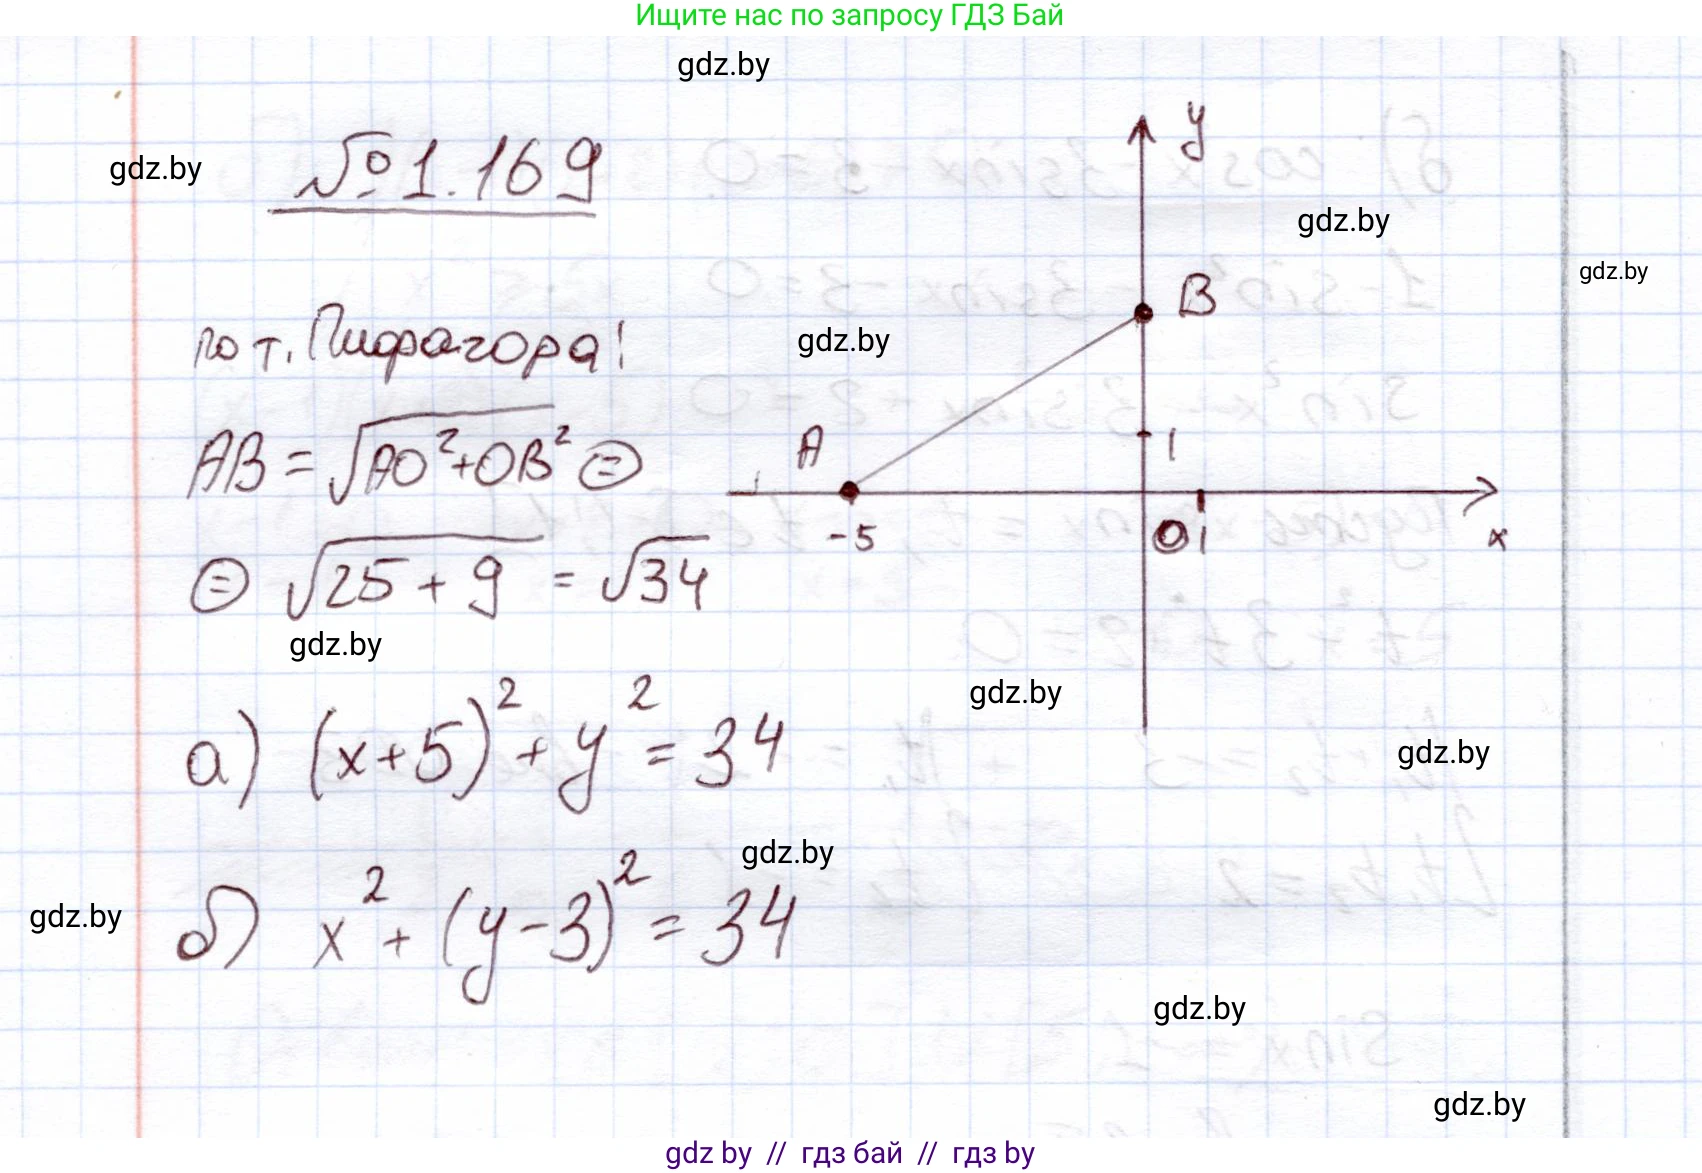 Ищите нас по запросу ГДЗ Бай
gdz.by
gdz.by
№1.169
y
gdz.by
gdz.by
B
gdz.by
по т. Пифагора!
A
1
AB = √AO²+OB² =
-5
O
1
x
= √25 + 9 = √34
gdz.by
gdz.by
а) (x+5)² + y² = 34
gdz.by
gdz.by
б) x² + (y-3)² = 34
gdz.by
gdz.by
gdz.by
gdz by // гдз бай // гдз by